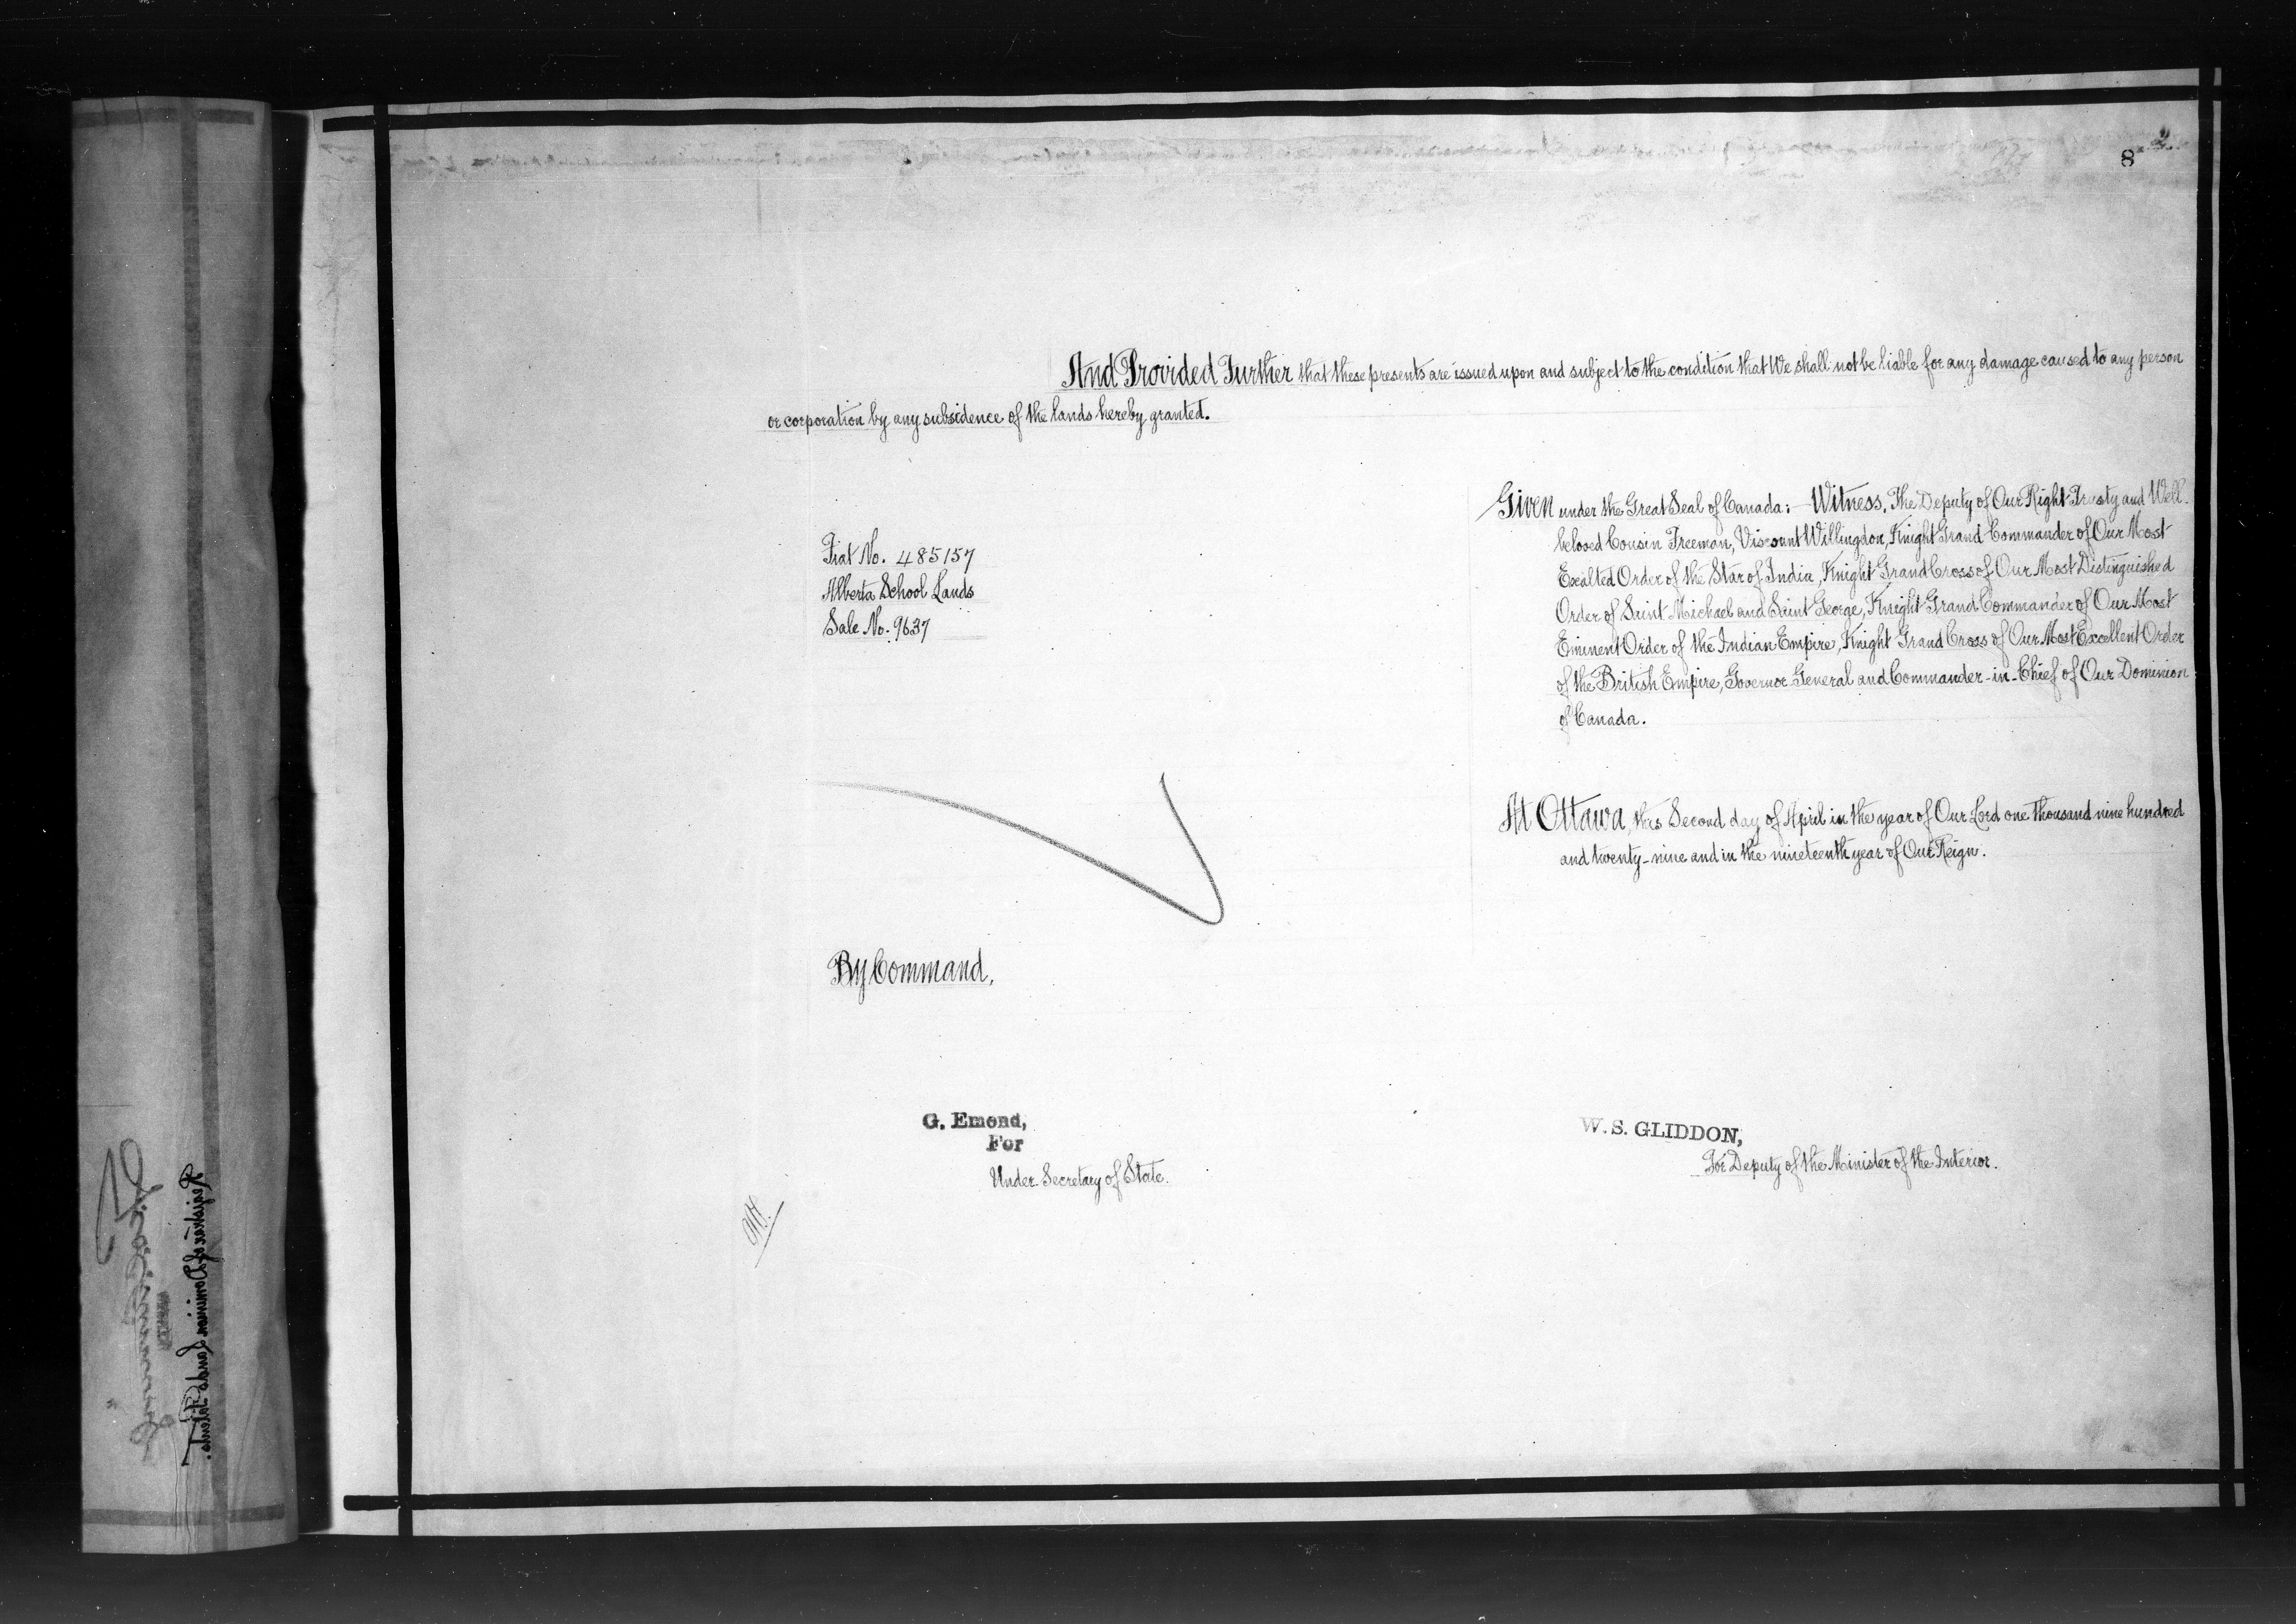 8
And Provided Further that these presents are issued upon and subject to the condition that We shall not be liable for any damage caused to any person
or corporation by any subsidence of the lands hereby granted.
Given under the Great Seal of Canada:- Witness, The Deputy of Our Right Trusty and Well-
beloved Cousin Freeman, Viscount Willingdon, Knight Grand Commander of Our Most
Exalted Order of the Star of India, Knight Grand Cross of Our Most Distinguished
Order of Saint Michael and Saint George, Knight Grand Commander of Our Most
Eminent Order of the Indian Empire, Knight Grand Cross of Our Most Excellent Order
of the British Empire, Governor General and Commander-in-Chief of Our Dominion
of Canada.
Fiat No. 485157
Alberta School Lands
Sale No. 9637
At Ottawa, this Second day of April in the year of Our Lord one thousand nine hundred
and twenty-nine and in the nineteenth year of Our Reign.
By Command,
G. Emond,
For
Under Secretary of State.
W. S. GLIDDON,
For Deputy of the Minister of the Interior.
Registrar of Dominion Lands Patents.